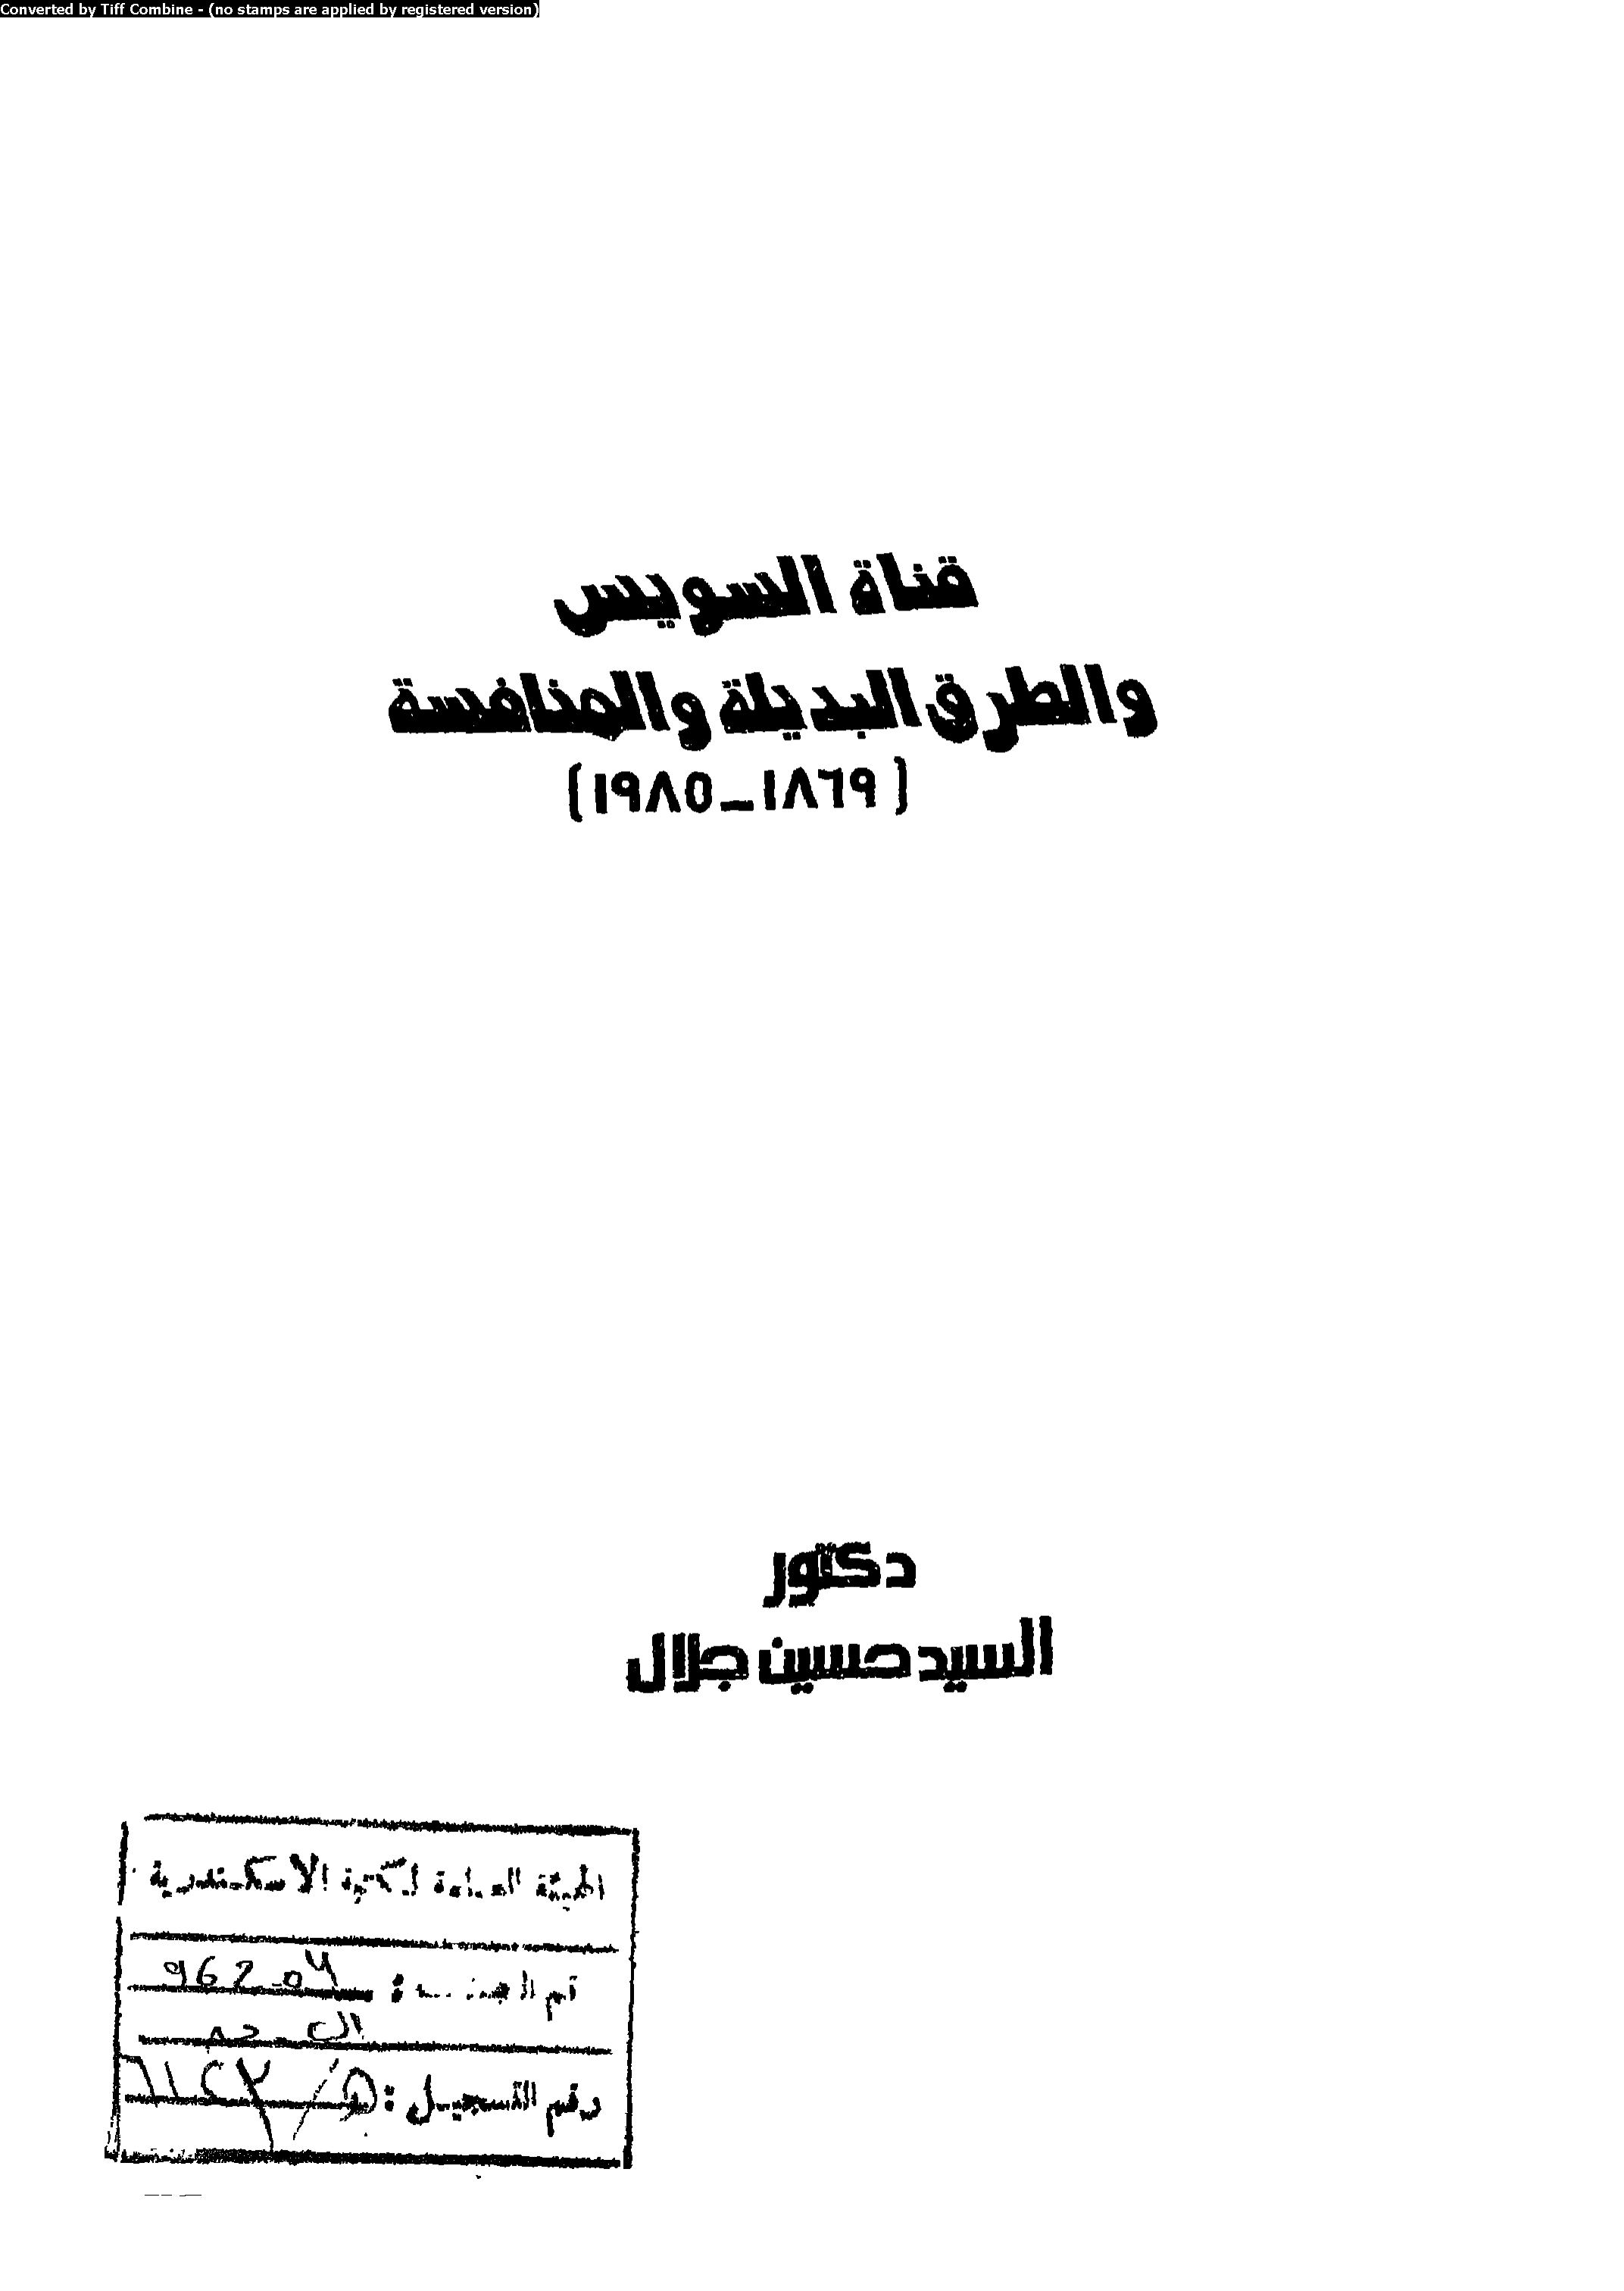 Converted by Tiff Combine - (no stamps are applied by registered version)
قناة السويس
والطرق البديلة والمنافسة
(١٨٦٩ـ١٩٨٥)
دكتور
السيد حسين جلال
الهيئة العامة لمكتبة الاسكندرية
962.04
رقم التسجيل :